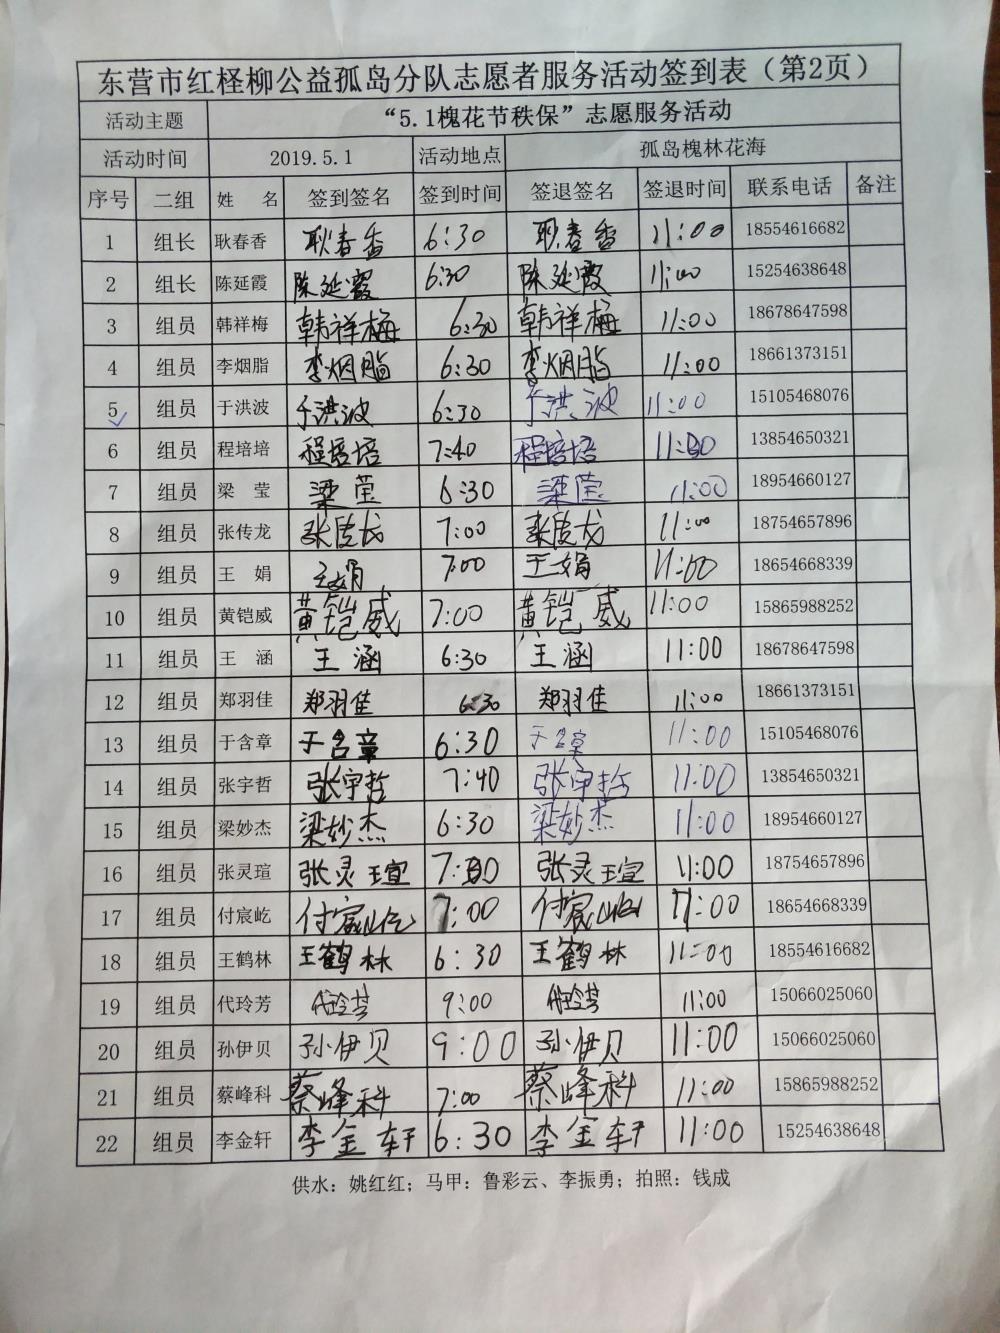 东营市红柽柳公益孤岛分队志愿者服务活动签到表（第2页）
活动主题 “5.1槐花节秩保”志愿服务活动
活动时间 2019.5.1 活动地点 孤岛槐林花海
序号 二组 姓 名 签到签名 签到时间 签退签名 签退时间 联系电话 备注
1 组长 耿春香 耿春香 6:30 耿春香 11:00 18554616682
2 组长 陈延霞 陈延霞 6:30 陈延霞 11:00 15254638648
3 组员 韩祥梅 韩祥梅 6:30 韩祥梅 11:00 18678647598
4 组员 李烟脂 李烟脂 6:30 李烟脂 11:00 18661373151
5 组员 于洪波 于洪波 6:30 于洪波 11:00 15105468076
6 组员 程培培 程培培 7:40 程培培 11:00 13854650321
7 组员 梁 莹 梁莹 6:30 梁莹 11:00 18954660127
8 组员 张传龙 张传龙 7:00 张传龙 11:00 18754657896
9 组员 王 娟 王娟 7:00 王娟 11:00 18654668339
10 组员 黄铠威 黄铠威 7:00 黄铠威 11:00 15865988252
11 组员 王 涵 王涵 6:30 王涵 11:00 18678647598
12 组员 郑羽佳 郑羽佳 6:30 郑羽佳 11:00 18661373151
13 组员 于含章 于含章 6:30 于含章 11:00 15105468076
14 组员 张宇哲 张宇哲 7:40 张宇哲 11:00 13854650321
15 组员 梁妙杰 梁妙杰 6:30 梁妙杰 11:00 18954660127
16 组员 张灵瑄 张灵瑄 7:00 张灵瑄 11:00 18754657896
17 组员 付宸屹 付宸屹 7:00 付宸屹 11:00 18654668339
18 组员 王鹤林 王鹤林 6:30 王鹤林 11:00 18554616682
19 组员 代玲芳 代玲芳 9:00 代玲芳 11:00 15066025060
20 组员 孙伊贝 孙伊贝 9:00 孙伊贝 11:00 15066025060
21 组员 蔡峰科 蔡峰科 7:00 蔡峰科 11:00 15865988252
22 组员 李金轩 李金轩 6:30 李金轩 11:00 15254638648
供水：姚红红；马甲：鲁彩云、李振勇；拍照：钱成